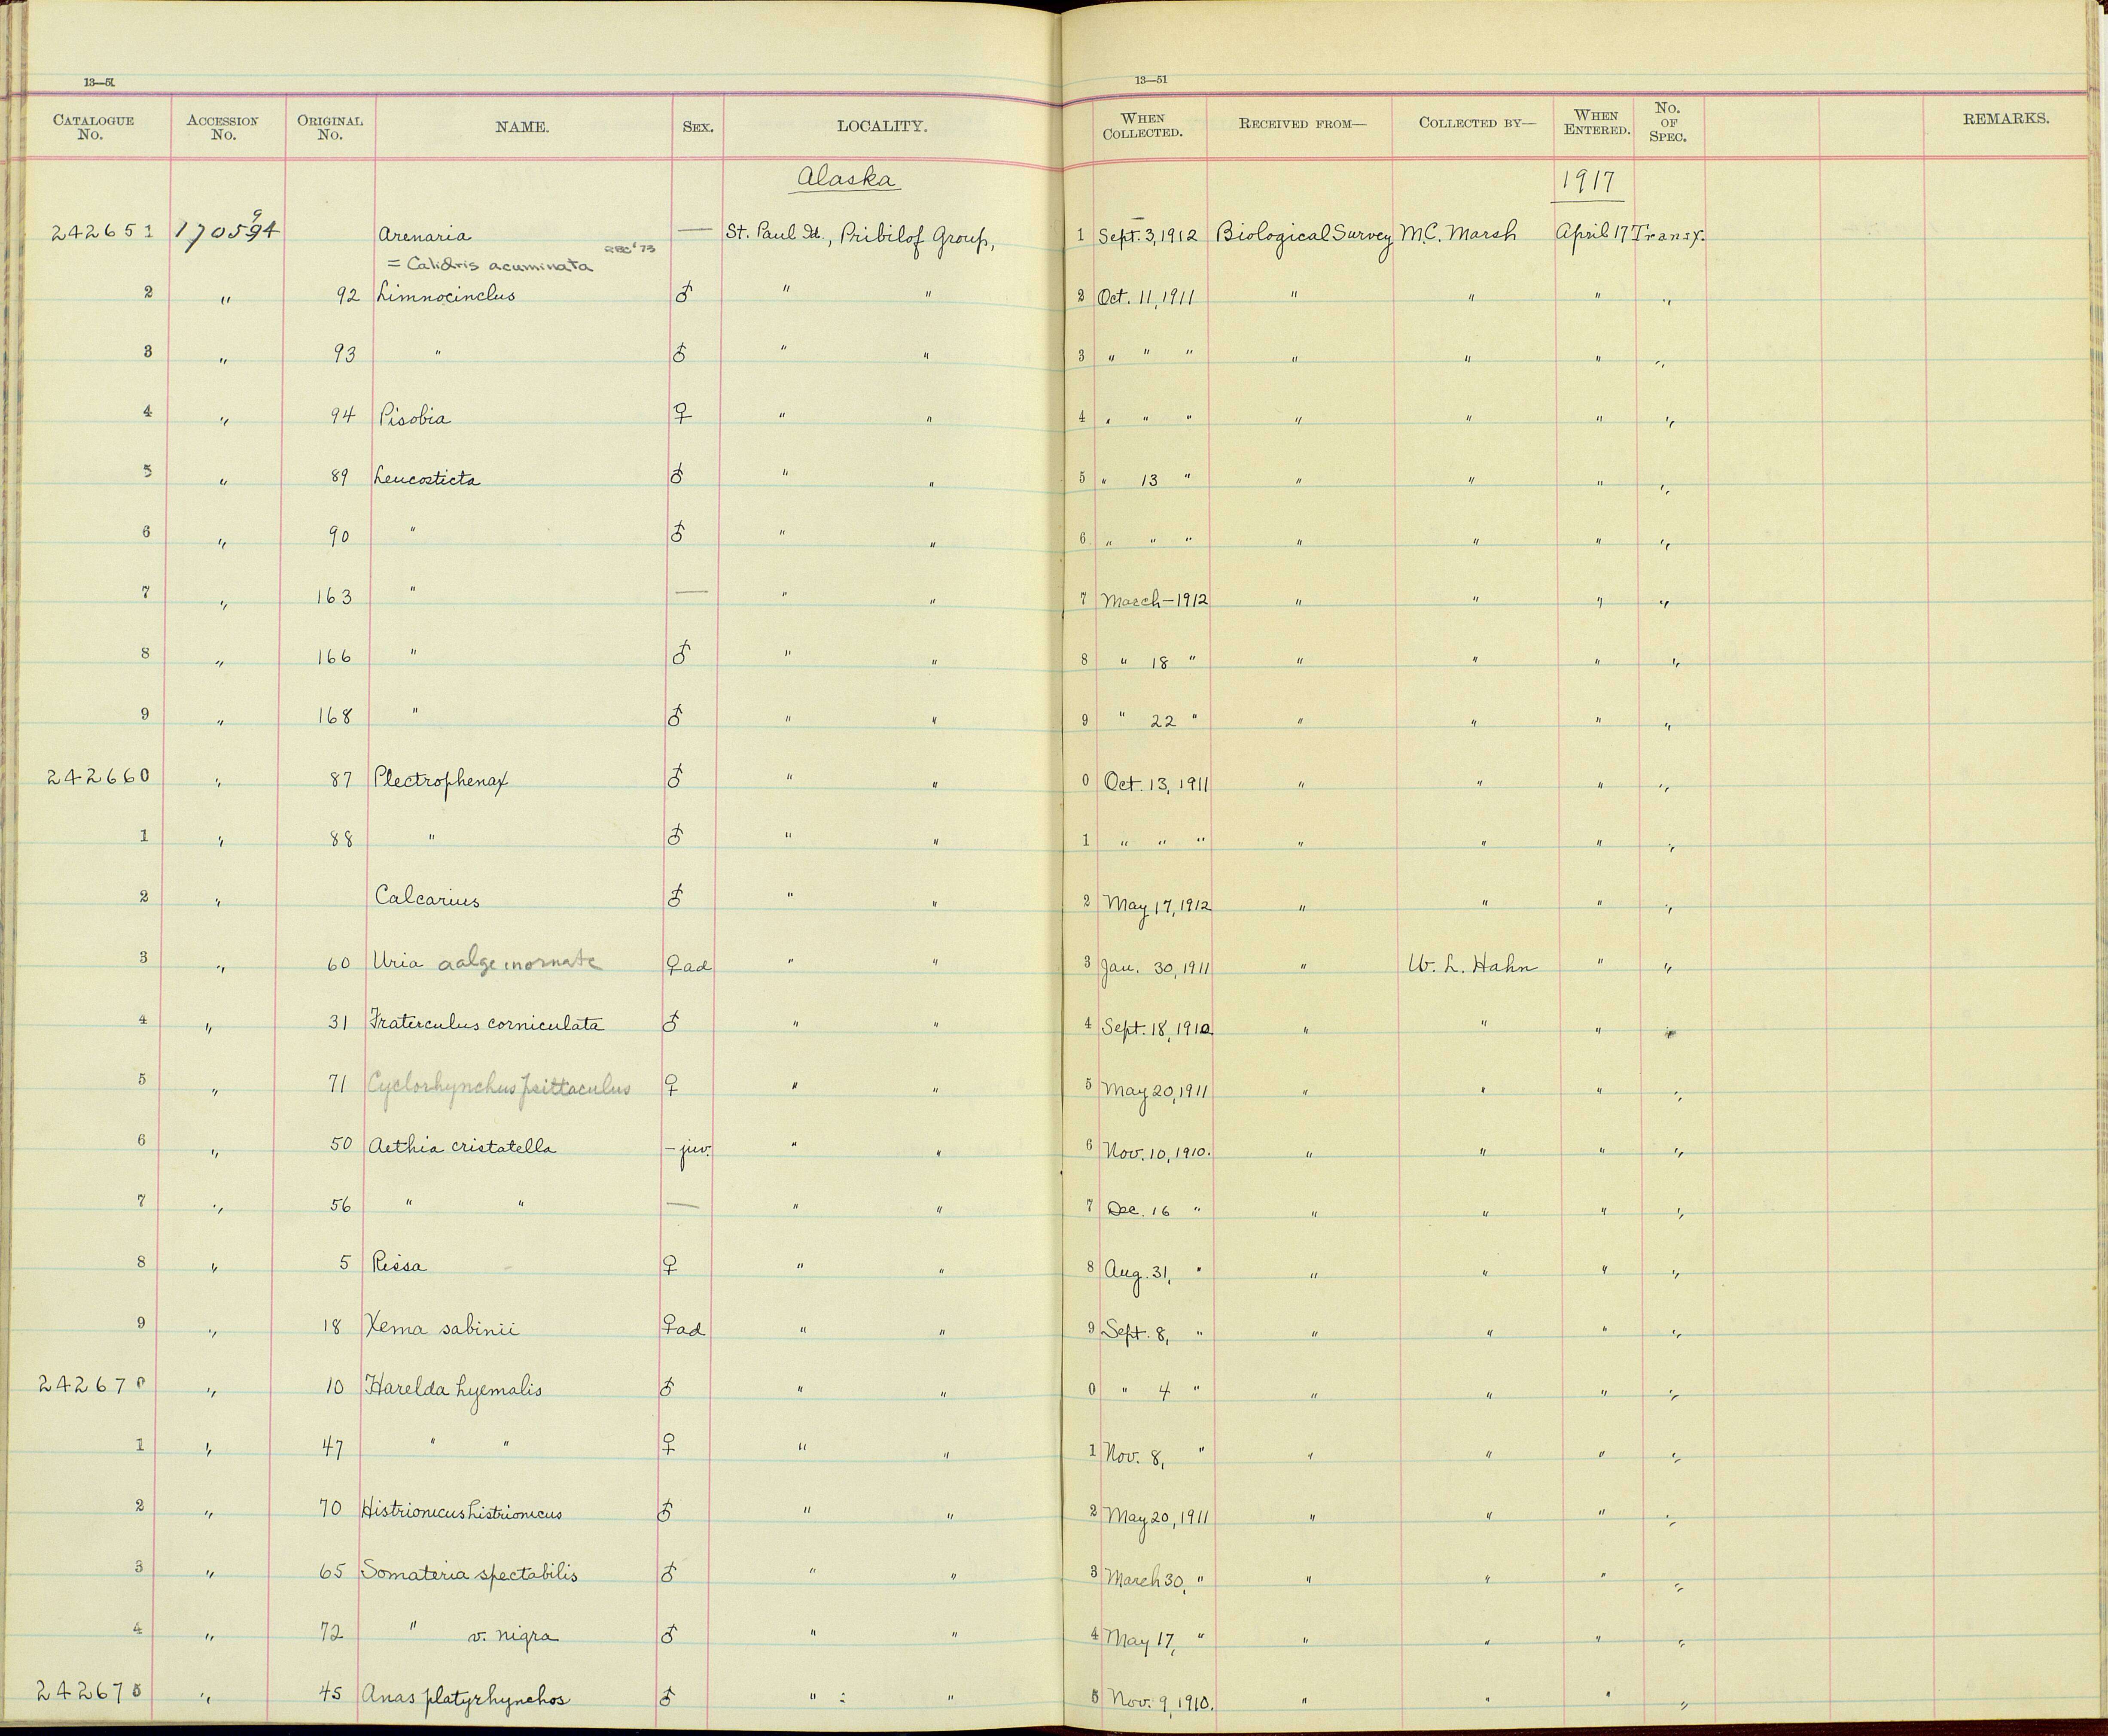 13—51 13—51
CATALOGUE No. ACCESSION No. ORIGINAL No. NAME. SEX. LOCALITY. WHEN COLLECTED. RECEIVED FROM— COLLECTED BY— WHEN ENTERED. No. OF SPEC. REMARKS.
Alaska 1917
242651 170594 9 Arenaria — St. Paul Id., Pribilof Group, 1 Sept. 3, 1912 Biological Survey M.C. Marsh April 17 Transf.
= Calidris acuminata
2 " 92 Limnocinclus ♂ " " 2 Oct. 11, 1911 " " " "
3 " 93 " ♂ " " 3 " " " " " " "
4 " 94 Pisobia ♀ " " 4 " " " " " " "
5 " 89 Leucosticta ♂ " " 5 " 13 " " " " "
6 " 90 " ♂ " " 6 " " " " " " "
7 " 163 " — " " 7 March – 1912 " " " "
8 " 166 " ♂ " " 8 " 18 " " " " "
9 " 168 " ♂ " " 9 " 22 " " " " "
242660 " 87 Plectrophenax ♂ " " 0 Oct. 13, 1911 " " " "
1 " 88 " ♂ " " 1 " " " " " " "
2 " Calcarius ♂ " " 2 May 17, 1912 " " " "
3 " 60 Uria aalge inornata ♀ad " " 3 Jan. 30, 1911 " W. L. Hahn " "
4 " 31 Fraterculus corniculata ♂ " " 4 Sept. 18, 1910 " " " "
5 " 71 Cyclorhynchus psittaculus ♀ " " 5 May 20, 1911 " " " "
6 " 50 Aethia cristatella – juv. " " 6 Nov. 10, 1910. " " " "
7 " 56 " " — " " 7 Dec. 16 " " " " "
8 " 5 Rissa ♀ " " 8 Aug. 31, " " " " "
9 " 18 Xema sabinii ♀ad " " 9 Sept. 8, " " " " "
242670 " 10 Harelda hyemalis ♂ " " 0 " 4 " " " " "
1 " 47 " " ♀ " " 1 Nov. 8, " " " " "
2 " 70 Histrionicus histrionicus ♂ " " 2 May 20, 1911 " " " "
3 " 65 Somateria spectabilis ♂ " " 3 March 30, " " " " "
4 " 72 " v. nigra ♂ " " 4 May 17, " " " " "
242675 " 45 Anas platyrhynchos ♂ " : " 5 Nov. 9, 1910. " " " "